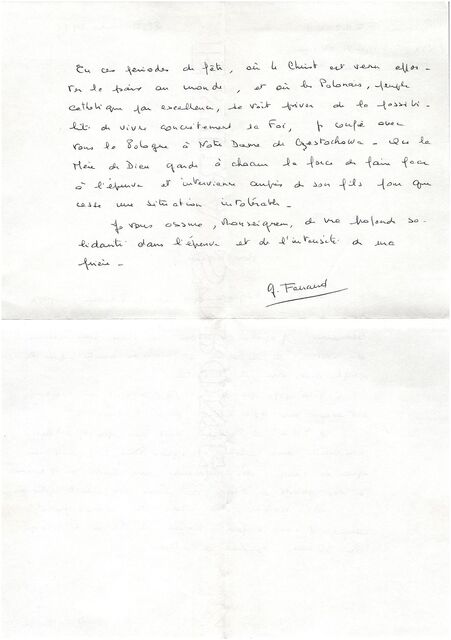 En ces périodes de fête, où le Christ est venu appor-
ter la paix au monde, et où les Polonais, peuple
catholique par excellence, se voit priver de la possibi-
lité de vivre concrètement sa Foi, je confie avec
vous la Pologne à Notre Dame de Czestochowa - Que la
Mère de Dieu garde à chacun la force de faire face
à l'épreuve et intervienne auprès de son fils pour que
cesse une situation intolérable -
Je vous assure, Monseigneur, de ma profonde so-
lidarité dans l'épreuve et de l'intensité de ma
prière -